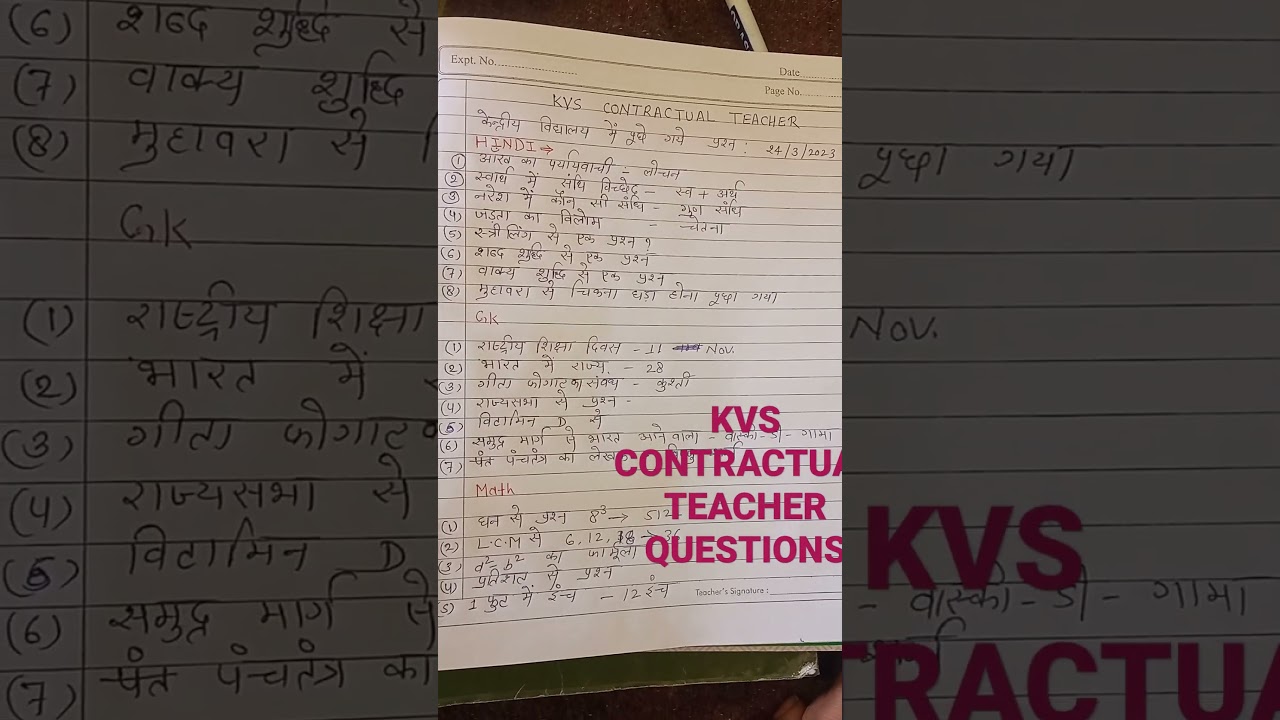 Expt. No.
Date
Page No.
KVS CONTRACTUAL TEACHER
केन्द्रीय विद्यालय में पूछे गये प्रश्न : 24/3/2023
HINDI →
(1) आंख का पर्यायवाची :- लोचन
(2) स्वार्थ में संधि विच्छेद - स्व + अर्थ
(3) नरेश में कौन सी संधि - गुण संधि
(4) जड़ता का विलोम - चेतना
(5) स्त्रीलिंग से एक प्रश्न ?
(6) शब्द शुद्धि से एक प्रश्न
(7) वाक्य शुद्धि से एक प्रश्न
(8) मुहावरा से चिकना घड़ा होना पूछा गया
GK
(1) राष्ट्रीय शिक्षा दिवस - 11 Nov.
(2) भारत में राज्य. - 28
(3) गीता फोगाट का संबंध - कुश्ती
(4) राज्यसभा से प्रश्न -
(5) विटामिन D से
(6) समुद्र मार्ग से भारत आने वाला - वास्को-डी-गामा
(7) पंत पंचतंत्र का लेखक
Math
(1) घन से प्रश्न 8³ → 512
(2) L.C.M से 6, 12, 18 → 36
(3) a²-b² का फार्मूला
(4) प्रतिशत से प्रश्न
(5) 1 फुट में इंच - 12 इंच
Teacher's Signature :
KVS
CONTRACTUA
TEACHER
QUESTIONS
(6) शब्द शुद्धि से
(7) वाक्य शुद्धि
(8) मुहावरा से
GK
(1) राष्ट्रीय शिक्षा
(2) भारत में
(3) गीता फोगाट
(4) राज्यसभा से
(5) विटामिन D
(6) समुद्र मार्ग से
(7) पंत पंचतंत्र का
पूछा गया
Nov.
KVS
- वास्को-डी-गामा
TRACTUA